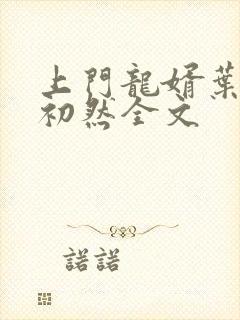 上門龍婿葉
初然全文
諾諾